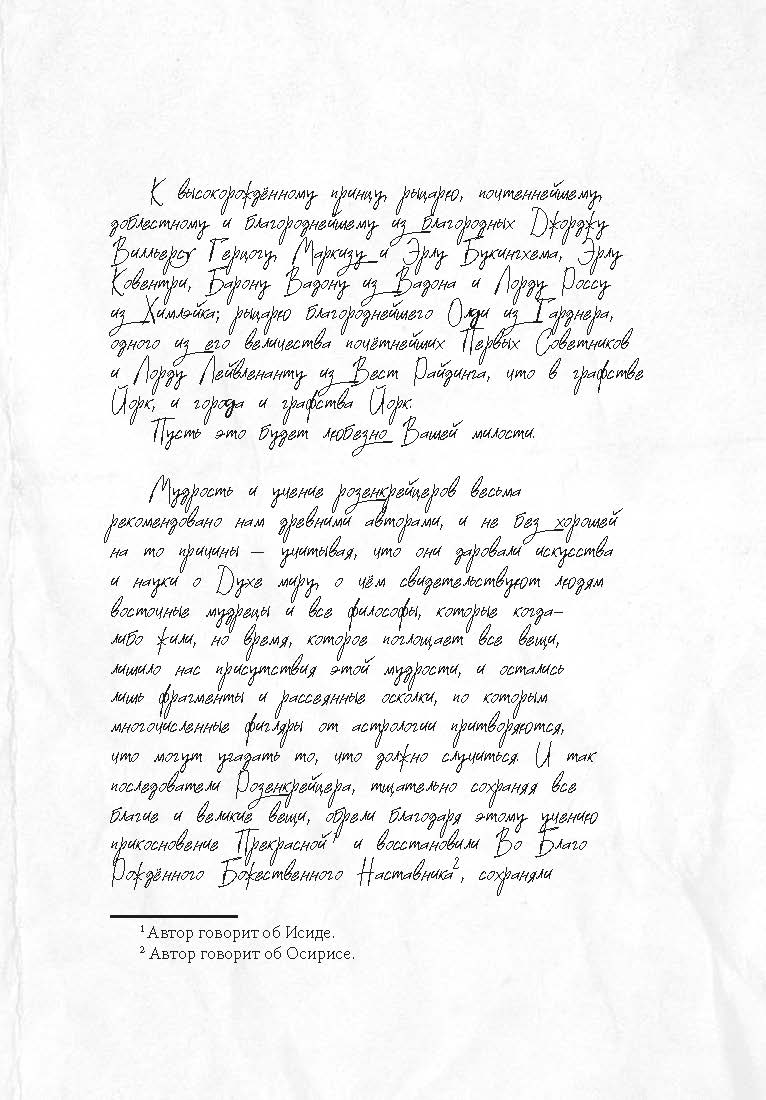 К высокорождённому принцу, рыцарю, почтеннейшему,
доблестному и благороднейшему из благородных Джорджу
Вилльерсу Герцогу, Маркизу и Эрлу Букингхема, Эрлу
Ковентри, Барону Вадону из Вадона и Лорду Россу
из Химлэйка; рыцарю благороднейшего Олди из Гарднера,
одного из его величества почётнейших Первых Советников
и Лорду Лейвленанту из Вест Райдинга, что в графстве
Йорк, и города и графства Йорк.
Пусть это будет любезно Вашей милости.
Мудрость и учение розенкрейцеров весьма
рекомендовано нам древними авторами, и не без хорошей
на то причины — учитывая, что они даровали искусства
и науки о Духе миру, о чём свидетельствуют людям
восточные мудрецы и все философы, которые когда-
либо жили, но время, которое поглощает все вещи,
лишило нас присутствия этой мудрости, и остались
лишь фрагменты и рассеянные осколки, по которым
многочисленные фигляры от астрологии притворяются,
что могут угадать то, что должно случиться. И так
последователи Розенкрейцера, тщательно сохраняя все
благие и великие вещи, обрели благодаря этому учению
прикосновение Прекрасной¹ и восстановили Во Благо
Рождённого Божественного Наставника², сохраняли
¹ Автор говорит об Исиде.
² Автор говорит об Осирисе.